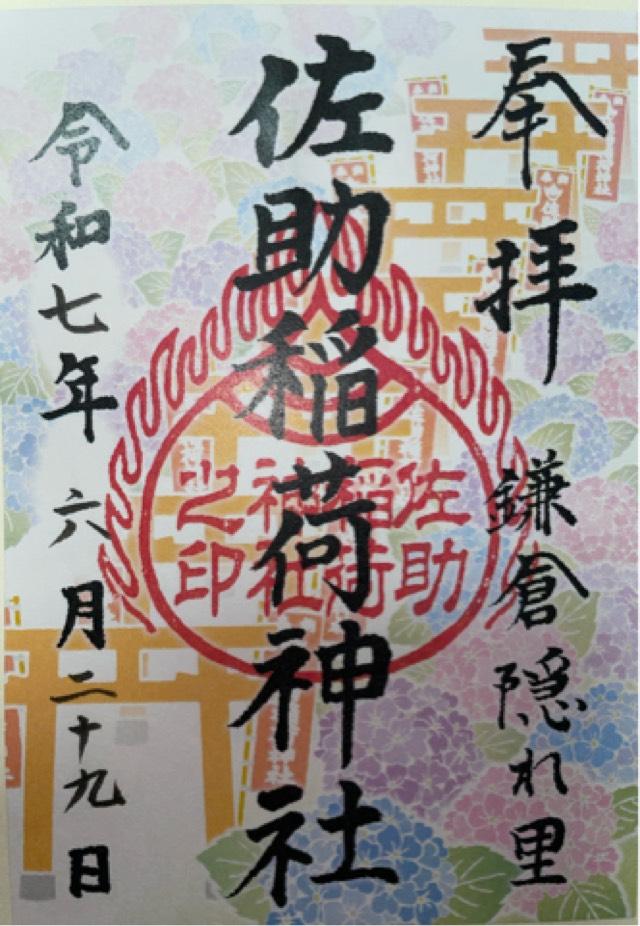 奉拝 鎌倉隠れ里
佐助稲荷神社
令和七年 六月二十九日
佐助
稲荷
神社
之印